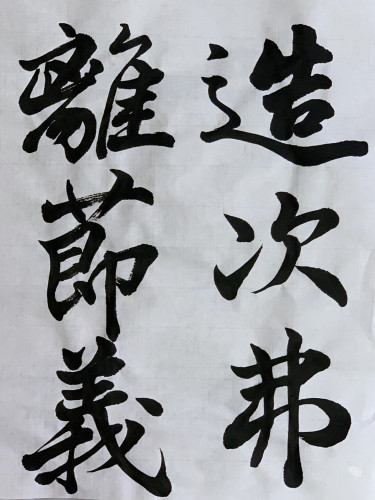 造次弗
離節義